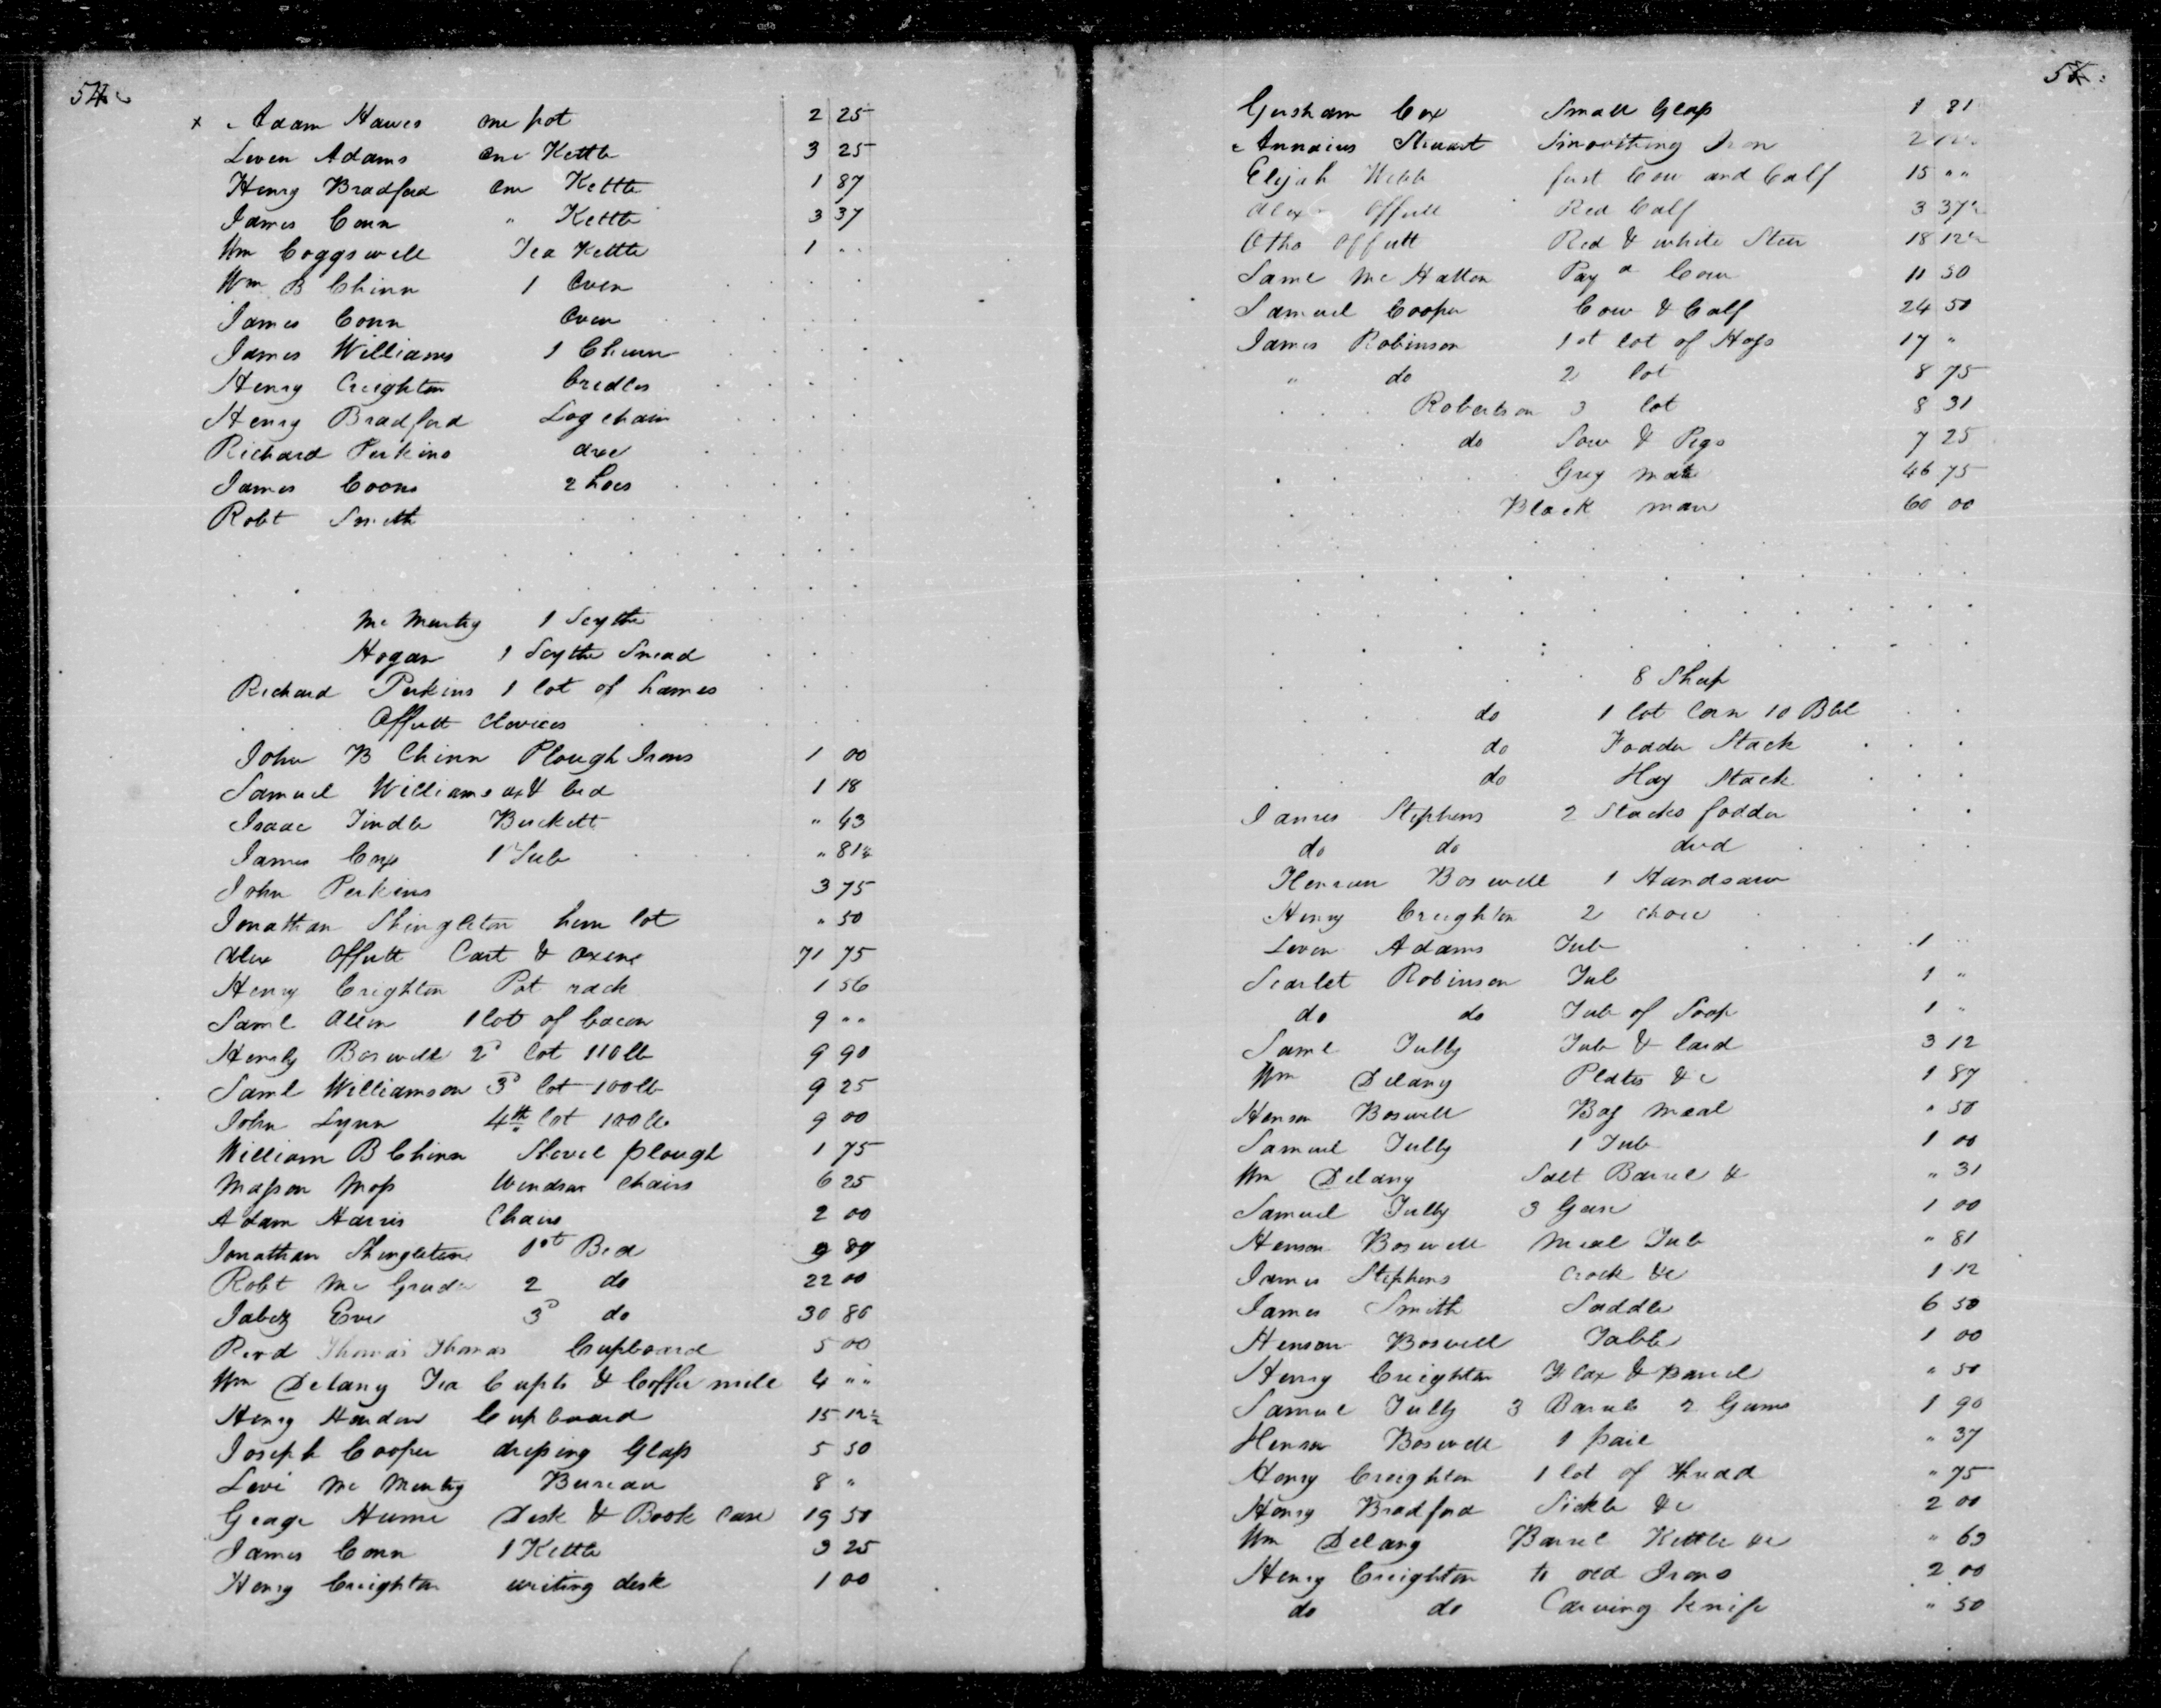 54
x Adam Hawes one pot 2 25
Leven Adams one Kettle 3 25
Henry Bradford one Kettle 1 87
James Conn " Kettle 3 37
Wm Coggswell Tea Kettle 1 ..
Wm B Chinn 1 Oven
James Conn Oven
James Williams 1 Churn
Henry Creighton Cradles
Henry Bradford Log chain
Richard Perkins axe
James Coons 2 hoes
Robt Smith
Mc Murtry 1 Scythe
Hogan 1 Scythe Snead
Richard Perkins 1 lot of hames
Offutt Clevices
John B Chinn Plough Irons 1 00
Samuel Williams ax & bed 1 18
Isaac Tindle Buckett " 43
James Cox 1 Tub " 81¼
John Perkins 3 75
Jonathan Shingleton hem lot " 50
Alex Offutt Cart & oxens 71 75
Henry Creighton Pot rack 1 56
Saml Allen 1 lot of bacon 9 ..
Hensly Boswell 2d lot 110 lb 9 90
Saml Williamson 3d lot 100 lb 9 25
John Lynn 4th lot 100 lb 9 00
William B Chinn Shovel plough 1 75
Mason Moss Windsor Chairs 6 25
Adam Harris Chairs 2 00
Jonathan Shingleton 1st Bed 9 87
Robt Mc Gruder 2 do 22 00
Jabez Eve 3d do 30 80
Revd Thomas Thomas Cupboard 5 00
Wm Delany Tea Cupts & Coffee mill 4 ..
Henry Hardin Cupboard 15 12½
Joseph Cooper dressing Glass 5 50
Levi Mc Murtry Bureau 8 "
George Hume Desk & Book Case 19 50
James Conn 1 Kettle 3 25
Henry Creighton writing desk 1 00
55
Gersham Cox Small Glass 1 81
Annaius Stewart Smoothing Iron 2
Elijah Webb first Cow and Calf 15 ..
Alex Offutt Red Calf 3 37½
Otho Offutt Red & white Steer 18 12½
Saml Mc Hatton Pay d Cow 11 50
Samuel Cooper Cow & Calf 24 50
James Robinson 1st lot of Hogs 17 "
" do 2 lot 8 75
Robertson 3 lot 8 31
do Sow & Pigs 7 25
Grey mare 46 75
Black mare 60 00
8 Sheep
do 1 lot Corn 10 Bbl
do Fodder Stack
do Hay Stack
James Stephens 2 Stacks fodder
do do
Henson Boswell 1 Handsaw
Henry Creighton 2
Leven Adams Tub 1 ..
Scarlet Robinson Tub 1 "
do do Tub of Soap 1 "
Saml Tully Tub & lard 3 12
Wm Delany Plates &c 1 87
Henson Boswell Bag meal " 50
Samuel Tully 1 Tub 1 00
Wm Delany Salt Barrel & " 31
Samuel Tully 3 1 00
Henson Boswell meal Tub " 81
James Stephens Crock &c 1 12
James Smith Saddle 6 50
Henson Boswell Table 1 00
Henry Creighton Flax & Barrel " 50
Samuel Tully 3 Barrels 2 Gums 1 90
Henson Boswell 1 pail " 37
Henry Creighton 1 lot of thread " 75
Henry Bradford Sickle &c 2 00
Wm Delany Barrel Kettle &c " 63
Henry Creighton to old Irons 2 00
do do Carving knife " 50